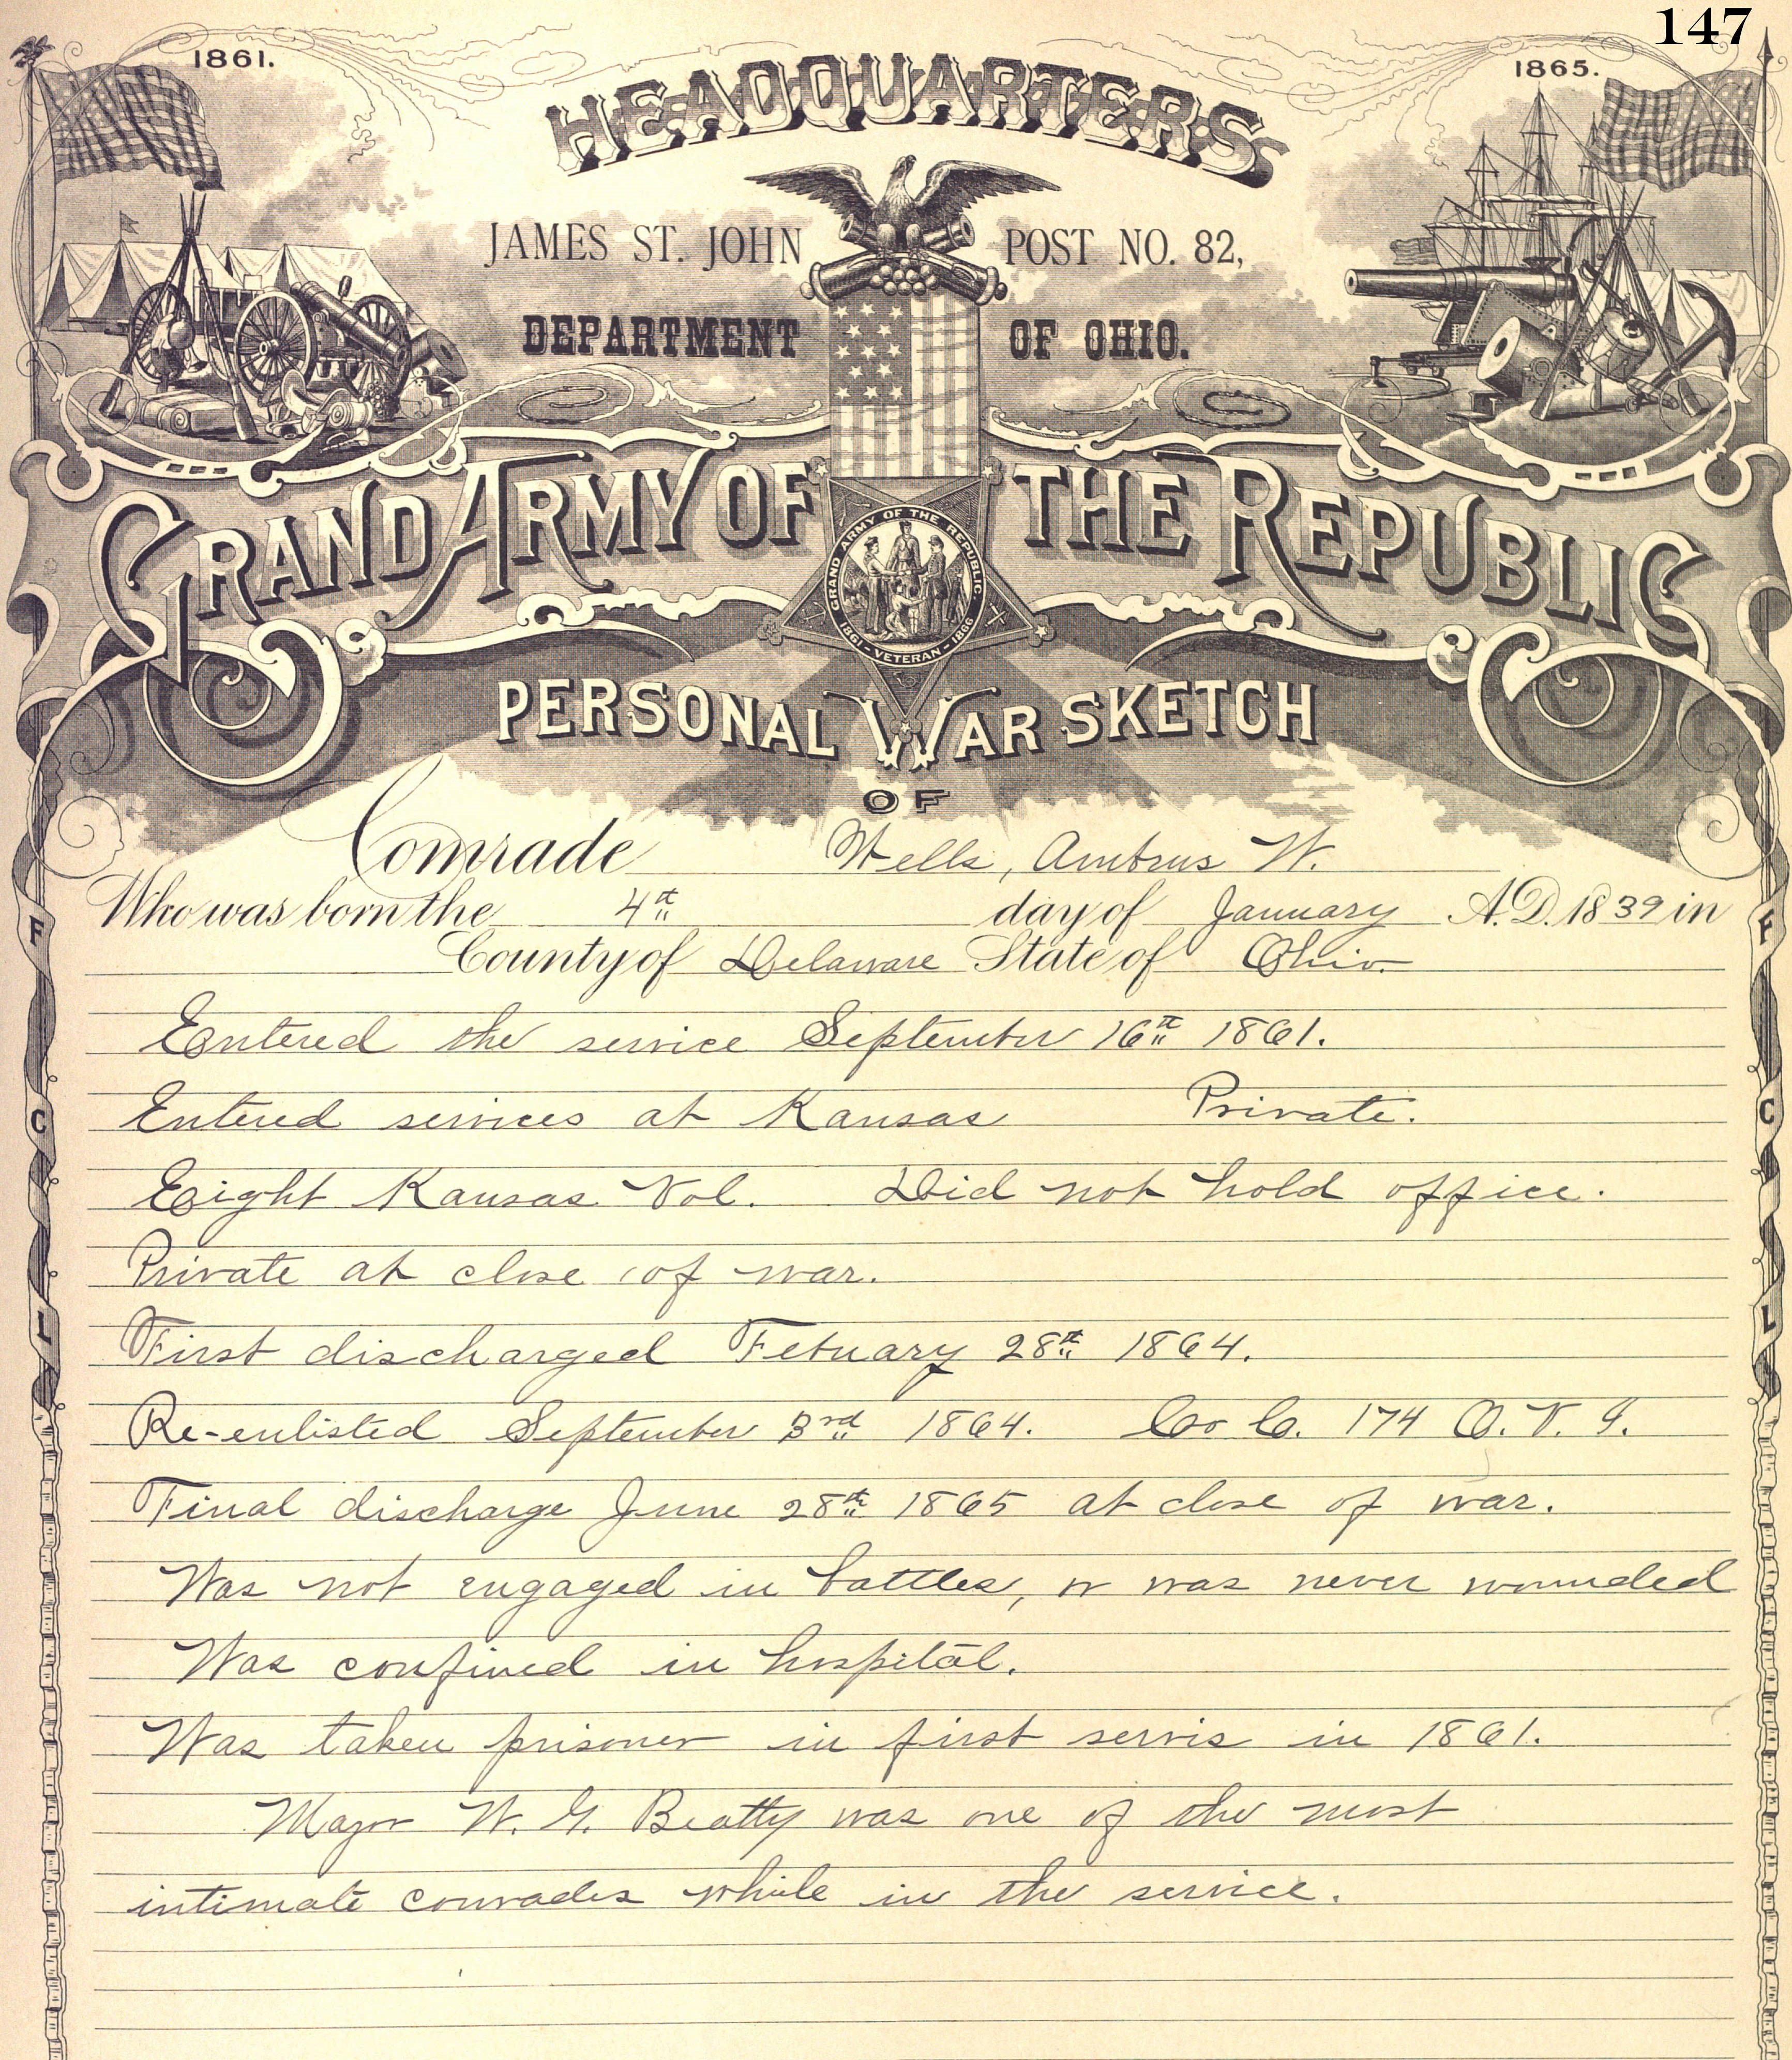 147
1861.
1865.
HEADQUARTERS
JAMES ST. JOHN POST NO. 82,
DEPARTMENT OF OHIO.
GRAND ARMY OF THE REPUBLIC
GRAND ARMY OF THE REPUBLIC
1861 - VETERAN - 1866
PERSONAL WAR SKETCH
OF
Comrade Wells, Ambrus W.
Who was born the 4th day of January A.D. 1839 in
County of Delaware State of Ohio.
F
F
Entered the service September 16th 1861.
Entered services at Kansas Private.
C
C
Eight Kansas Vol. Did not hold office.
Private at close of war.
L
L
First discharged Febuary 28th 1864.
Re-enlisted September 3rd 1864. Co C. 174 O. V. I.
Final discharge June 28th 1865 at close of war.
Was not engaged in battles, or was never wounded
Was confined in hospital.
Was taken prisoner in first servis in 1861.
Major W. G. Beatty was one of the most
intimate comrades while in the service.